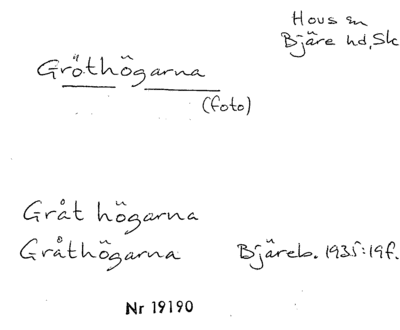 Hovs sn
Bjäre hd, Sk
Gröthögarna
(foto)
Gråt högarna
Gråthögarna Bjäreb. 1935:19f.
Nr 19190